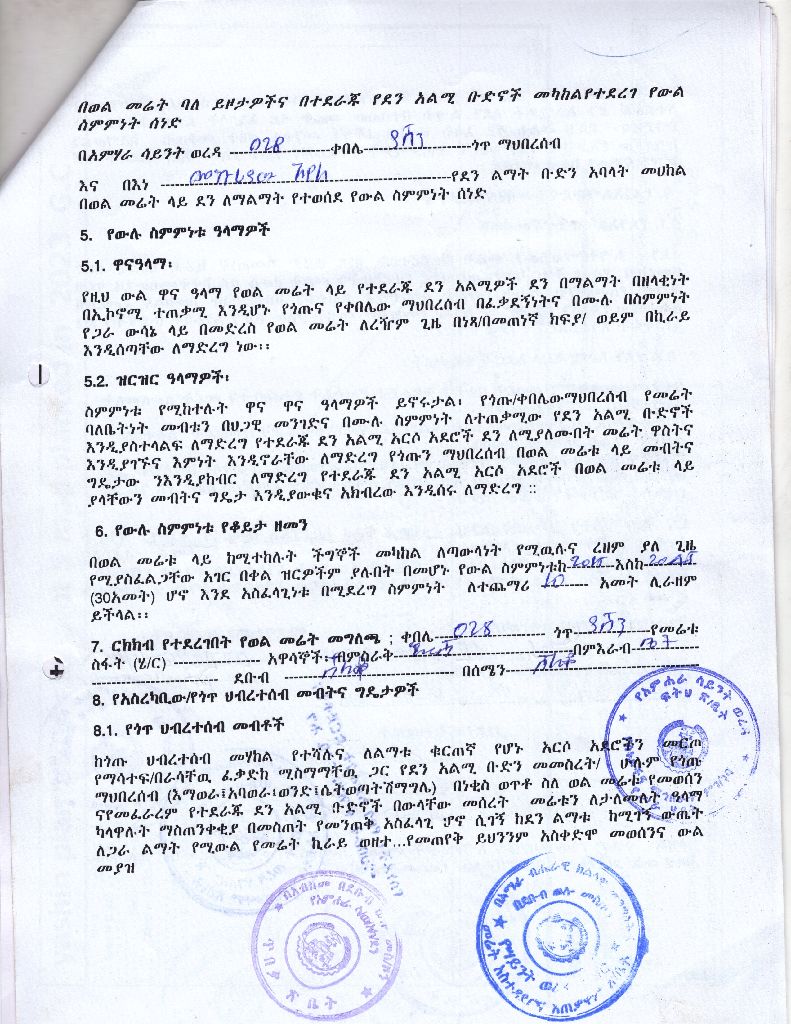 በወል መሬት ባለ ይዞታዎችና በተደራጁ የደን አልሚ ቡድኖች መካከልየተደረገ የውል
ስምምነት ሰነድ
በአምሃራ ሳይንት ወረዳ ---- 028 ----ቀበሌ---- ----ጎጥ ማህበረሰብ
እና በእነ ---- ----የደን ልማት ቡድን አባላት መሀከል
በወል መሬት ላይ ደን ለማልማት የተወሰደ የውል ስምምነት ሰነድ
5. የውሉ ስምምነቱ ዓላማዎች
5.1. ዋናዓላማ፡
የዚህ ውል ዋና ዓላማ የወል መሬት ላይ የተደራጁ ደን አልሚዎች ደን በማልማት በዘላቂነት
በኢኮኖሚ ተጠቃሚ እንዲሆኑ የጎጡና የቀበሌው ማህበረሰብ በፈቃደኝነትና በሙሉ በስምምነት
የጋራ ውሳኔ ላይ በመድረስ የወል መሬት ለረዥም ጊዜ በነጻ/በመጠነኛ ክፍያ/ ወይም በኪራይ
እንዲሰጣቸው ለማድረግ ነው፡፡
5.2. ዝርዝር ዓላማዎች፡
ስምምነቱ የሚከተሉት ዋና ዋና ዓላማዎች ይኖሩታል፡ የጎጡ/ቀበሌውማህበረሰብ የመሬት
ባለቤትነት መብቱን በህጋዊ መንገድና በሙሉ ስምምነት ለተጠቃሚው የደን አልሚ ቡድኖች
እንዲያስተላልፍ ለማድረግ የተደራጁ ደን አልሚ አርሶ አደሮች ደን ለሚያለሙበት መሬት ዋስትና
እንዲያገኙና እምነት እንዲኖራቸው ለማድረግ የጎጡን ማህበረሰብ በወል መሬቱ ላይ መብትና
ግዴታው ንእንዲያከብር ለማድረግ የተደራጁ ደን አልሚ አርሶ አደሮች በወል መሬቱ ላይ
ያላቸውን መብትና ግዴታ እንዲያውቁና አክብረው እንዲሰሩ ለማድረግ ፡፡
6. የውሉ ስምምነቱ የቆይታ ዘመን
በወል መሬቱ ላይ ከሚተከሉት ችግኞች መካከል ለጣውላነት የሚዉሉና ረዘም ያለ ጊዜ
የሚያስፈልጋቸው አገር በቀል ዝርዎችም ያሉበት በመሆኑ የውል ስምምነቱከ 2015 እስከ
(30አመት) ሆኖ እንደ አስፈላጊነቱ በሚደረግ ስምምነት ለተጨማሪ 10---- አመት ሊራዘም
ይችላል፡፡
7. ርክክብ የተደረገበት የወል መሬት መግለጫ ; ቀበሌ----028---- ጎጥ---- ----የመሬቱ
ስፋት (ሄ/ር) ---- አዋሳኞች፡ በምስራቅ---- ----በምእራብ-
---- ደቡብ ---- በሰሜን----
8. የአስረካቢው/የጎጥ ህብረተሰብ መብትና ግዴታዎች
8.1. የጎጥ ህብረተሰብ መብቶች
ከጎጡ ህብረተሰብ መሃከል የተሻሉና ለልማቱ ቁርጠኛ የሆኑ አርሶ አደሮችን መርጦ
የማሳተፍ/በራሳቸዉ ፈቃድከ ሚስማማቸዉ ጋር የደን አልሚ ቡድን መመስረት/ ሁሉም የጎጡ
ማህበረሰብ (እማወራ፤አባወራ፤ወንድ፤ሴትወጣትሽማግሌ) በነቂስ ወጥቶ ስለ ወል መሬቱ የመወሰን
ናየመፈራረም የተደራጁ ደን አልሚ ቡድኖች በውላቸው መሰረት መሬቱን ለታለመለት ዓላማ
ካላዋሉት ማስጠንቀቂያ በመስጠት የመንጠቅ አስፈላጊ ሆኖ ሲገኝ ከደን ልማቱ ከሚገኝ ውጤት
ለጋራ ልማት የሚውል የመሬት ኪራይ ወዘተ...የመጠየቅ ይህንንም አስቀድሞ መወሰንና ውል
መያዝ